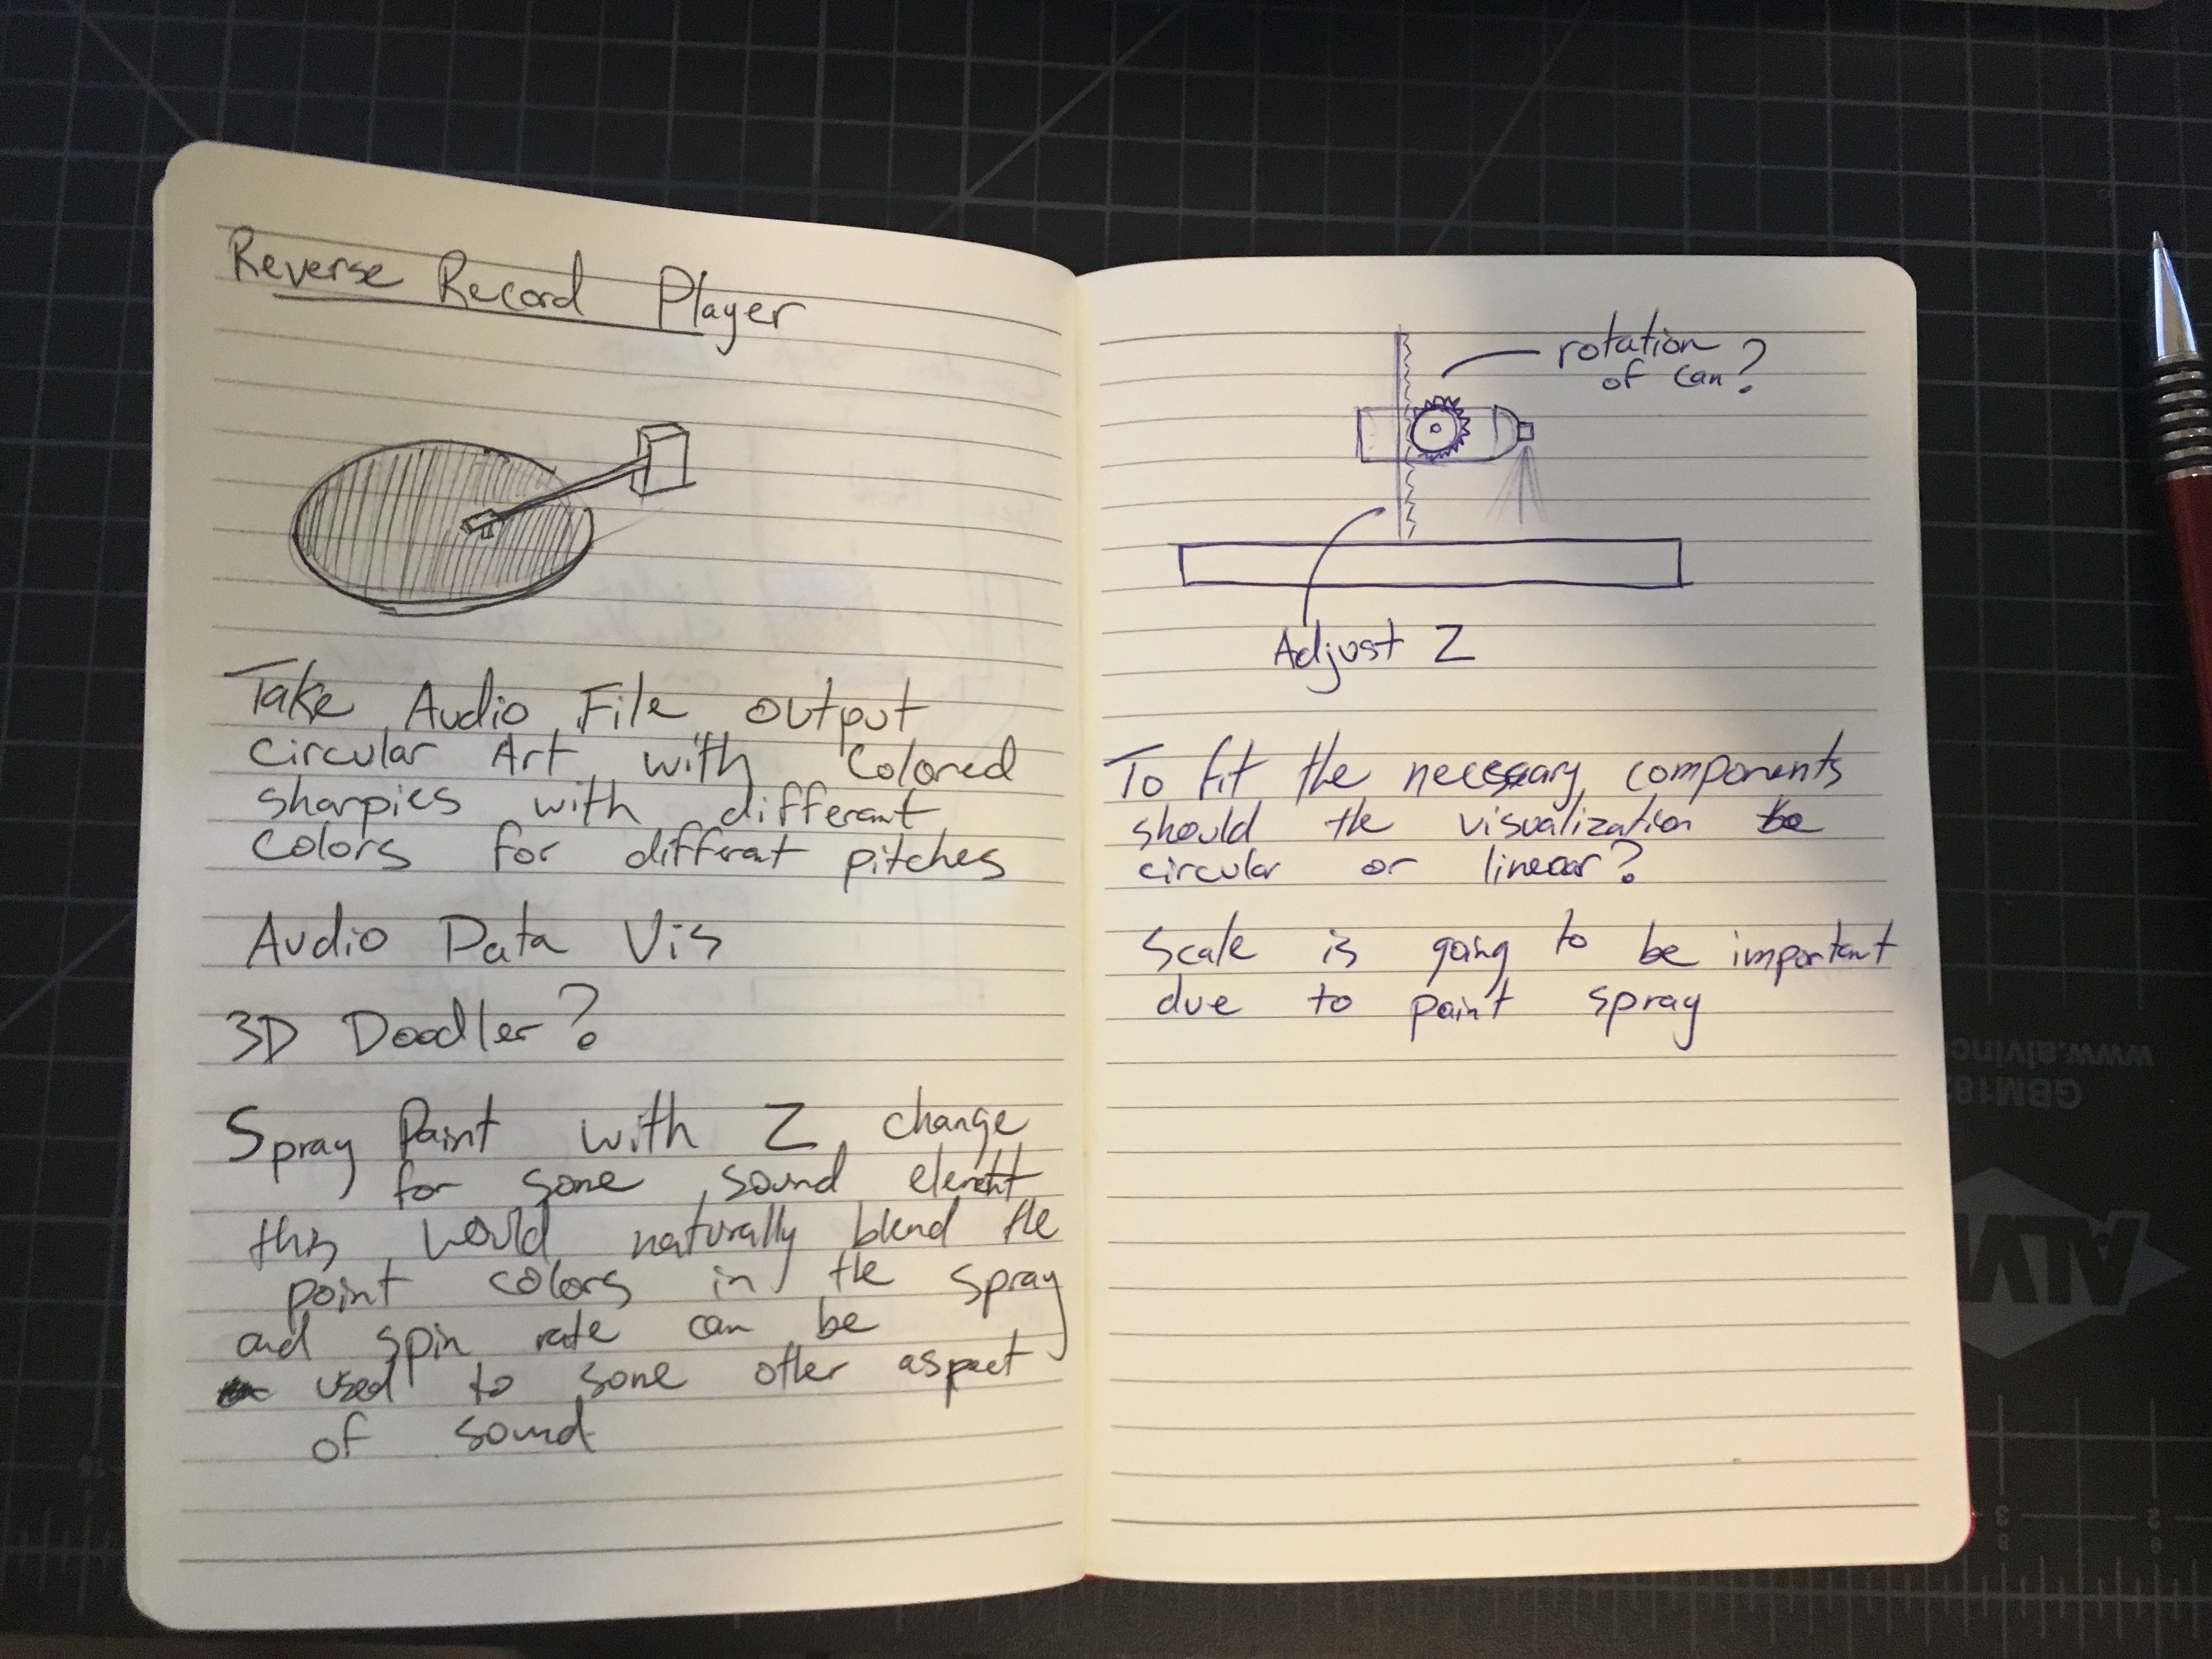 Reverse Record Player
Take Audio File output
circular Art with Colored
sharpies with different
colors for different pitches
Audio Data Vis
3D Doodler?
Spray Paint with Z change
for some sound element
this would naturally blend the
paint colors in the spray
and spin rate can be
used to some other aspect
of sound
rotation
of can?
Adjust Z
To fit the necessary components
should the visualization be
circular or linear?
Scale is going to be important
due to paint spray
www.alvinc
GBM18
ALV